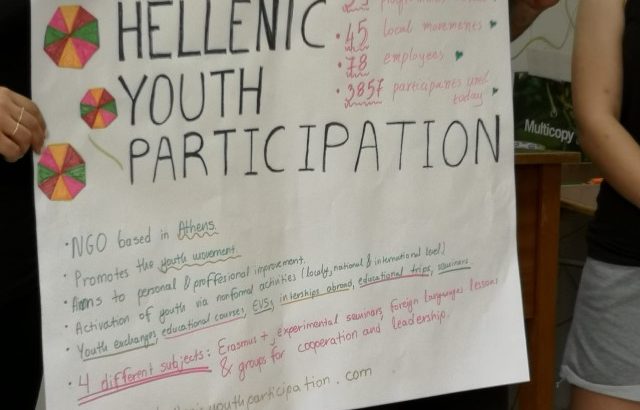 HELLENIC
YOUTH
PARTICIPATION
• 45 local movements
• 78 employees
• 3857 participants until today
Multicopy
• NGO based in Athens.
• Promotes the youth movement
• Aims to personal & proffesional improvement.
• Activation of youth via nonformal activities (localy, national & international level)
• Youth exchanges, educational courses, EVSs, interships abroad, educational trips, seminars
• 4 different subjects: Erasmus +, experimental seminars, foreign languages lessons
& groups for cooperation and leadership.
youthparticipation.com